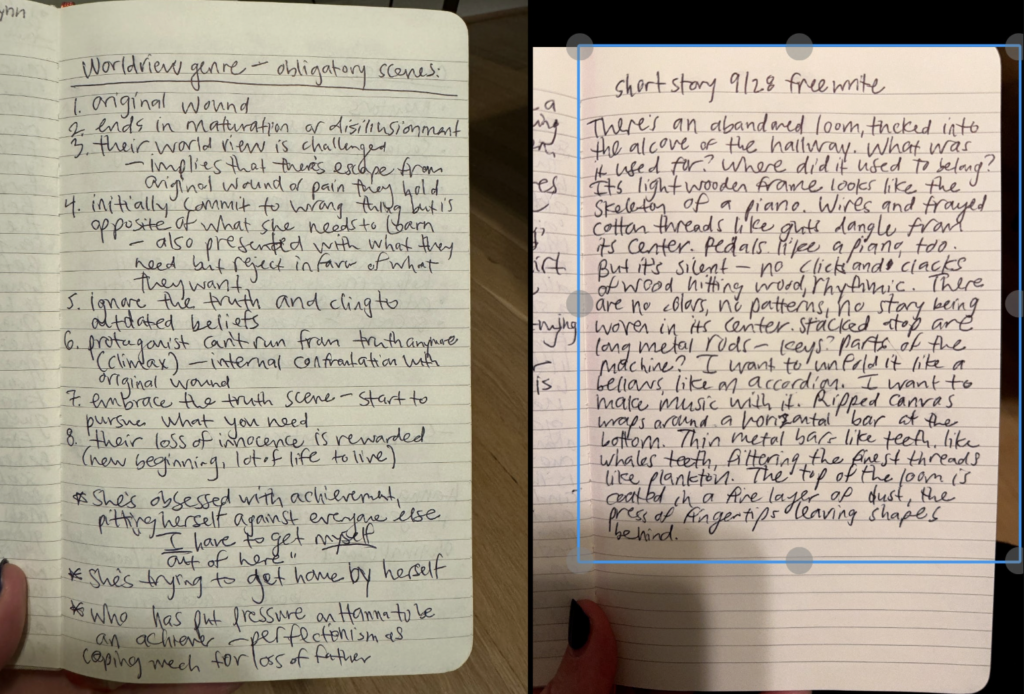 ynn
Worldview genre – obligatory scenes:
1. original wound
2. ends in maturation or disillusionment
3. their world view is challenged
– implies that there's escape from
original wound or pain they hold
4. initially commit to wrong thing but is
opposite of what she needs to learn
– also presented with what they
need but reject in favor of what
they want
5. ignore the truth and cling to
outdated beliefs
6. protagonist can't run from truth anymore
(climax) – internal confrontation with
original wound
7. embrace the truth scene – start to
pursue what you need
8. their loss of innocence is rewarded
(new beginning, lot of life to live)
* She's obsessed with achievement,
pitting herself against everyone else
"I have to get myself
out of here"
* She's trying to get home by herself
* Who has put pressure on Hanna to be
an achiever – perfectionism as
coping mech for loss of father
short story 9/28 freewrite
There's an abandoned loom, tucked into
the alcove of the hallway. What was
it used for? Where did it used to belong?
Its light wooden frame looks like the
skeleton of a piano. Wires and frayed
cotton threads like guts dangle from
its center. Pedals like a piano too.
But it's silent – no clicks and clacks
of wood hitting wood, rhythmic. There
are no colors, no patterns, no story being
woven in its center. Stacked atop are
long metal rods – keys? Parts of the
machine? I want to unfold it like a
bellows, like an accordion. I want to
make music with it. Ripped canvas
wraps around a horizontal bar at the
bottom. Thin metal bars like teeth, like
whales teeth, filtering the finest threads
like plankton. The top of the loom is
coated in a fine layer of dust, the
press of fingertips leaving shapes
behind.